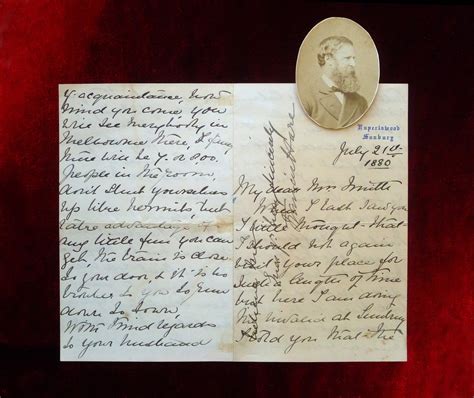 Rupertswood
Sunbury
July 21st
1880
y. acquaintance, now
mind you come, you
will see everybody in
Melbourne there, I fancy,
there will be 7. or 800.
people in the room,
don't shut yourselves
up like hermits, but
take advantage of
any little fun you can
get, the train is close
to your door, & it is no
bother to you to run
down to town,
With kind regards
to your husband
very sincerely
My dear Mrs Smith
When I last saw you
I little thought that
I should not again
visit your place for
such a length of time
but here I am doing
the invalid at Sunbury
I told you that the